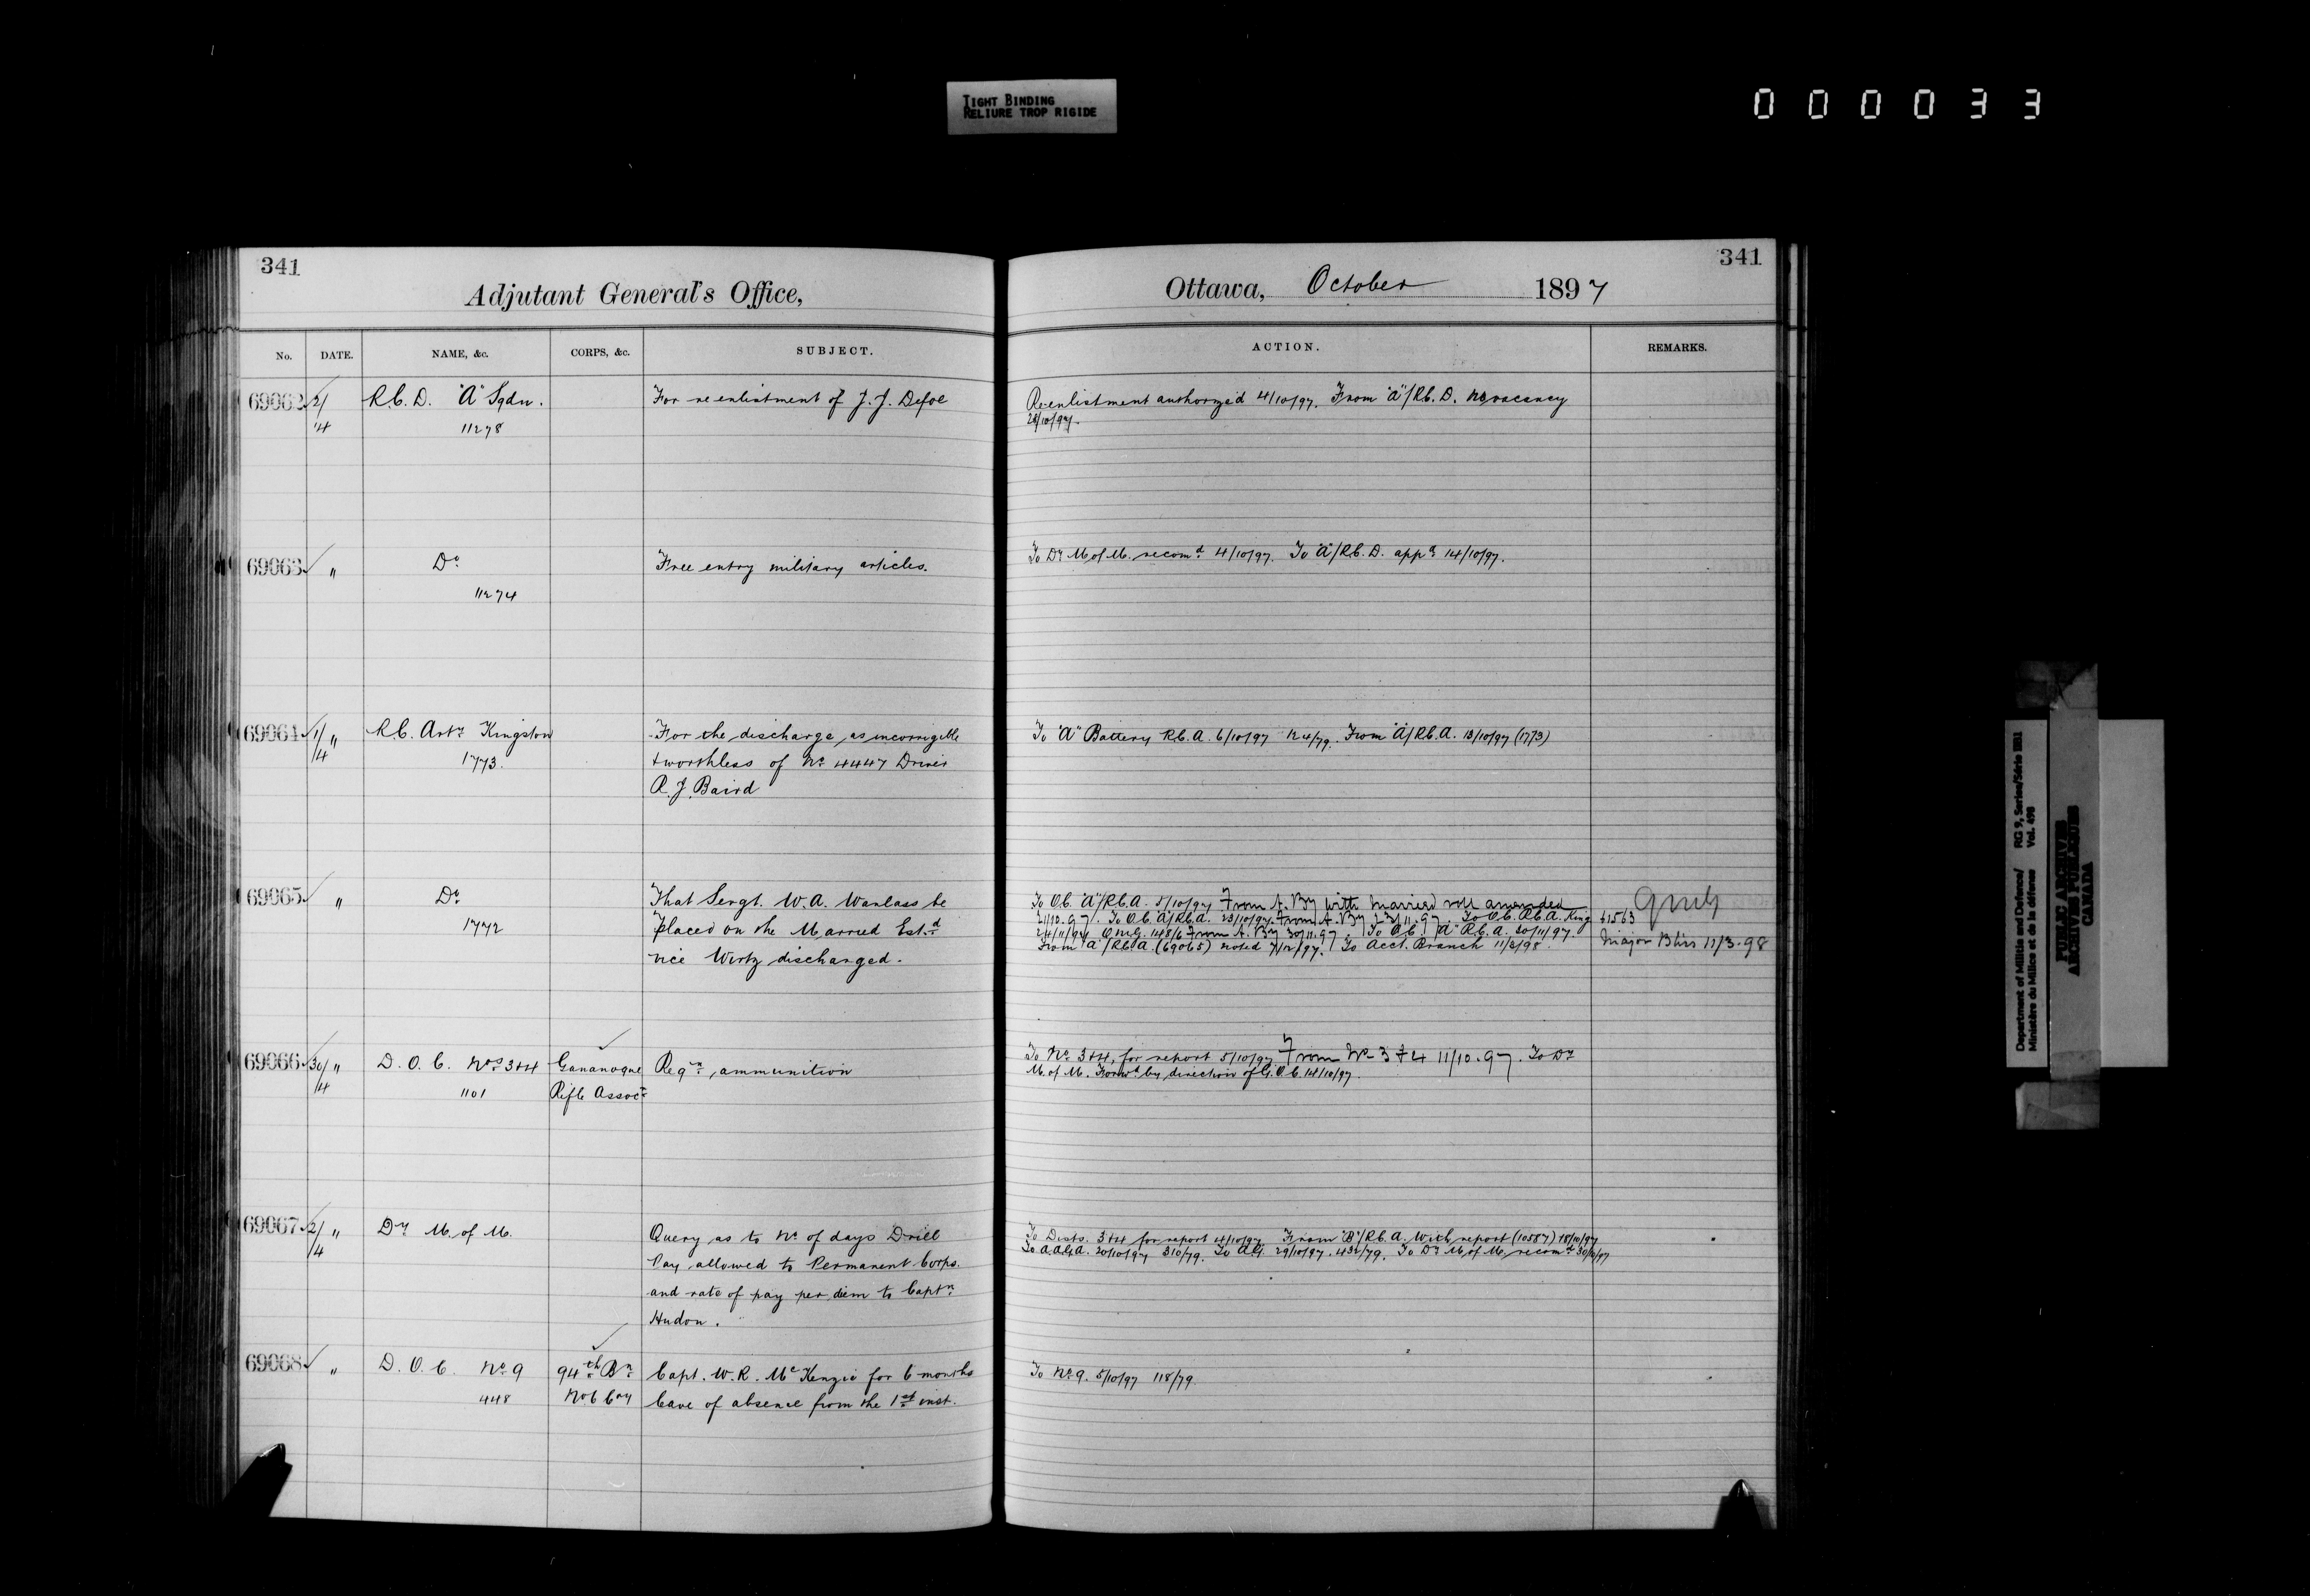 TIGHT BINDING
RELIURE TROP RIGIDE
000033
341
Adjutant General's Office,
No. DATE. NAME, &c. CORPS, &c. SUBJECT.
69062 2/4 R.C.D. "A" Sqdn. For re enlistment of J. J. Defoe
11278
69063 " Do Free entry military articles.
11274
69064 1/4 " R.C. Arty Kingston For the discharge, as incorrigible
1773. + worthless of No 4447 Driver
R. J. Baird
69065 " Do That Sergt. W. A. Wanlass be
1772 placed on the Married Estd
vice Wirtz discharged.
69066 30/4 " D.O.C. Nos 3+4 Gananoque Reqn ammunition
1101 Rifle Assocn
69067 2/4 " Dy M. of M. Query as to No of days Drill
Pay allowed to Permanent Corps.
and rate of pay per diem to Captn
Hudon.
69068 " D.O.C. No 9 94th Bn Capt. W. R. McKenzie for 6 months
448 No 6 Coy leave of absence from the 1st inst.
341
Ottawa, October 1897
ACTION. REMARKS.
Re-enlistment authorized 4/10/97. From "A"/R.C.D. No vacancy
28/10/97.
To Dy M. of M. recomd 4/10/97. To "A"/R.C.D. appd 14/10/97.
To "A" Battery R.C.A. 6/10/97 124/79. From "A"/R.C.A. 13/10/97 (1773)
To O.C. "A"/R.C.A. 5/10/97 From A. By with Married roll amended
21.10.97. To O.C. "A"/R.C.A. 23/10/97. From A. By 23/11.97. To O.C. R.C.A. King 61563
24/11/97 Q.M.G. 148/6 From A. By 30/11.97. To O.C. "A" R.C.A. 30/11/97.
From "A"/R.C.A. (69065) noted 7/12/97. To Acct. Branch 11/3/98. Major Bliss 11/3.98
To No 3+4, for report 5/10/97 From No 3 + 4 11/10.97. To Dy
M. of M. Forwd by direction of G.O.C. 14/10/97.
To Dists. 3+4 for report 4/10/97 From "B"/R.C.A. with report (10587) 18/10/97
To A.A.G.A. 20/10/97 310/79. To A.G. 29/10/97. 432/79. To Dy M. of M. recomd 30/10/97
To No 9. 5/10/97 118/79.
Department of Militia and Defence/ RG 9, Series/Série IIB1
Ministère du Milice et de la défense Vol. 498
PUBLIC ARCHIVES
ARCHIVES PUBLIQUES
CANADA